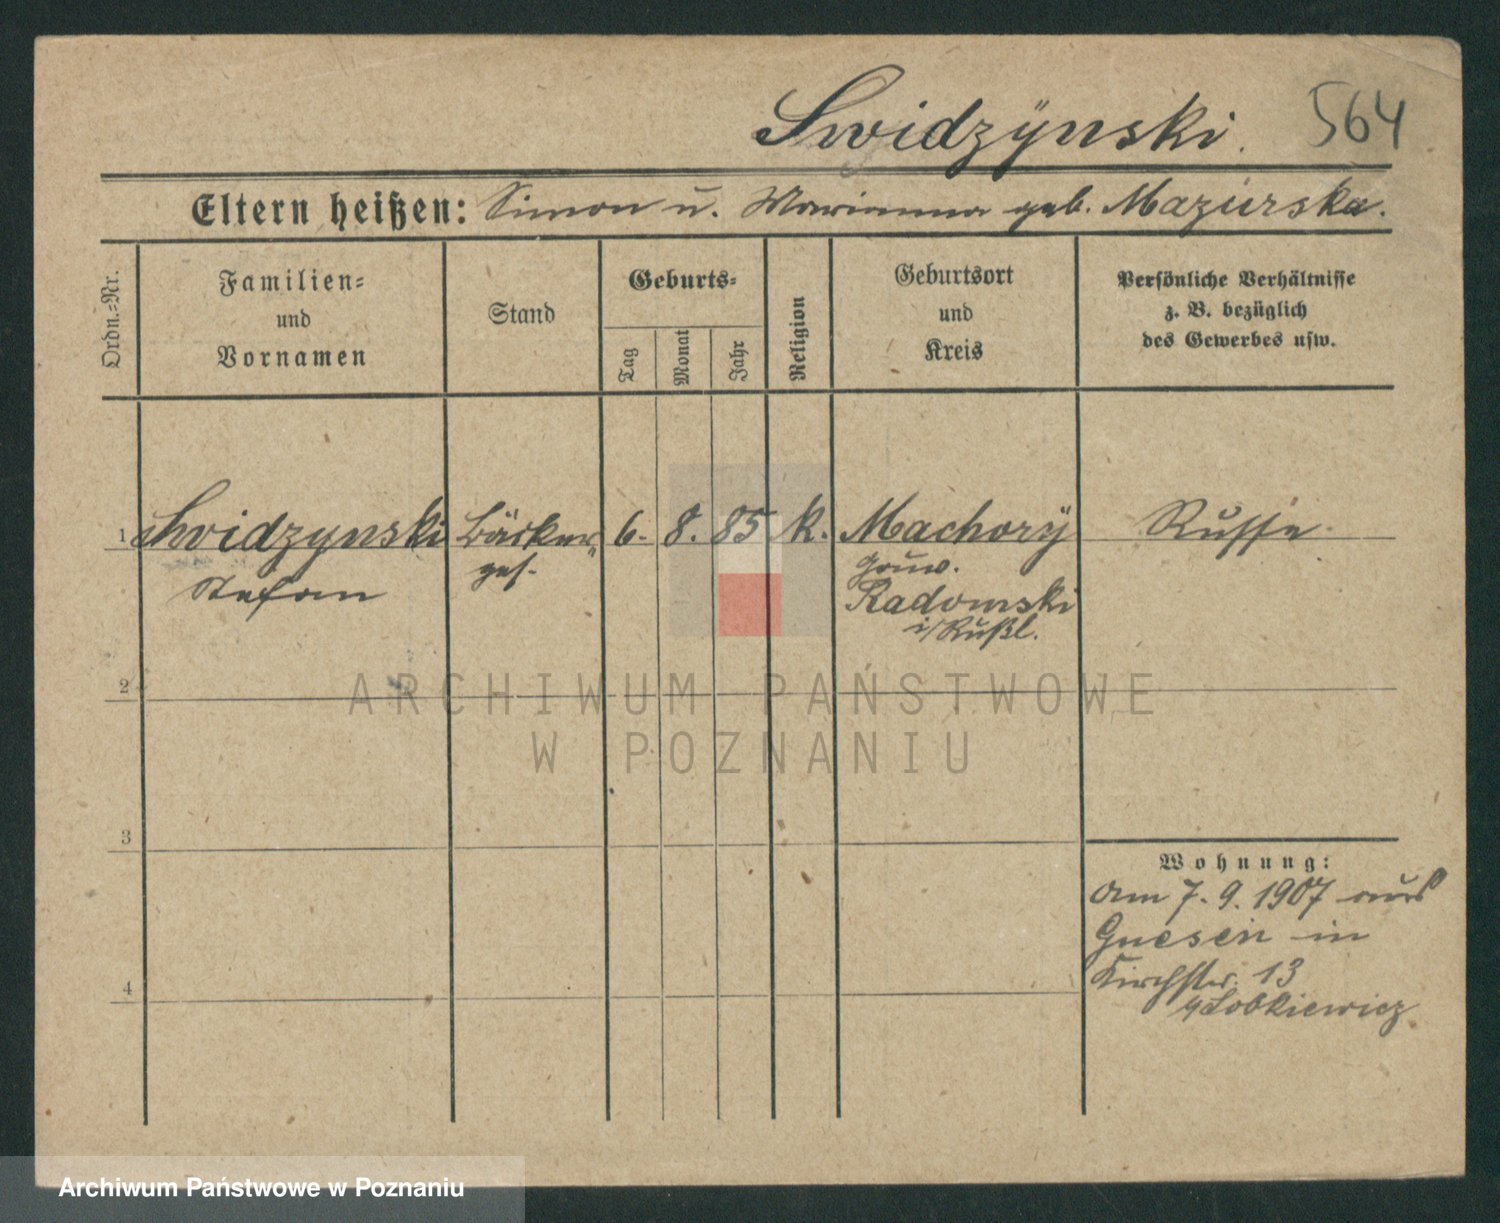 Swidzÿnski. 564
Eltern heißen: Simon u. Marianna geb. Mazurska.
Ordn.=Nr.
Familien=
und
Vornamen
Stand
Geburts=
Tag
Monat
Jahr
Religion
Geburtsort
und
Kreis
Persönliche Verhältnisse
z. B. bezüglich
des Gewerbes usw.
1 Swidzynski Bäcker 6. 8. 85 K. Machorÿ Russe
Stefan ges. Gouw.
Radomski
i/Rußl.
2
ARCHIWUM PAŃSTWOWE
W POZNANIU
3
Wohnung:
am 7. 9. 1907 aus
Gnesen in
Kirchstr. 13
b/Lobkiewicz
4
Archiwum Państwowe w Poznaniu